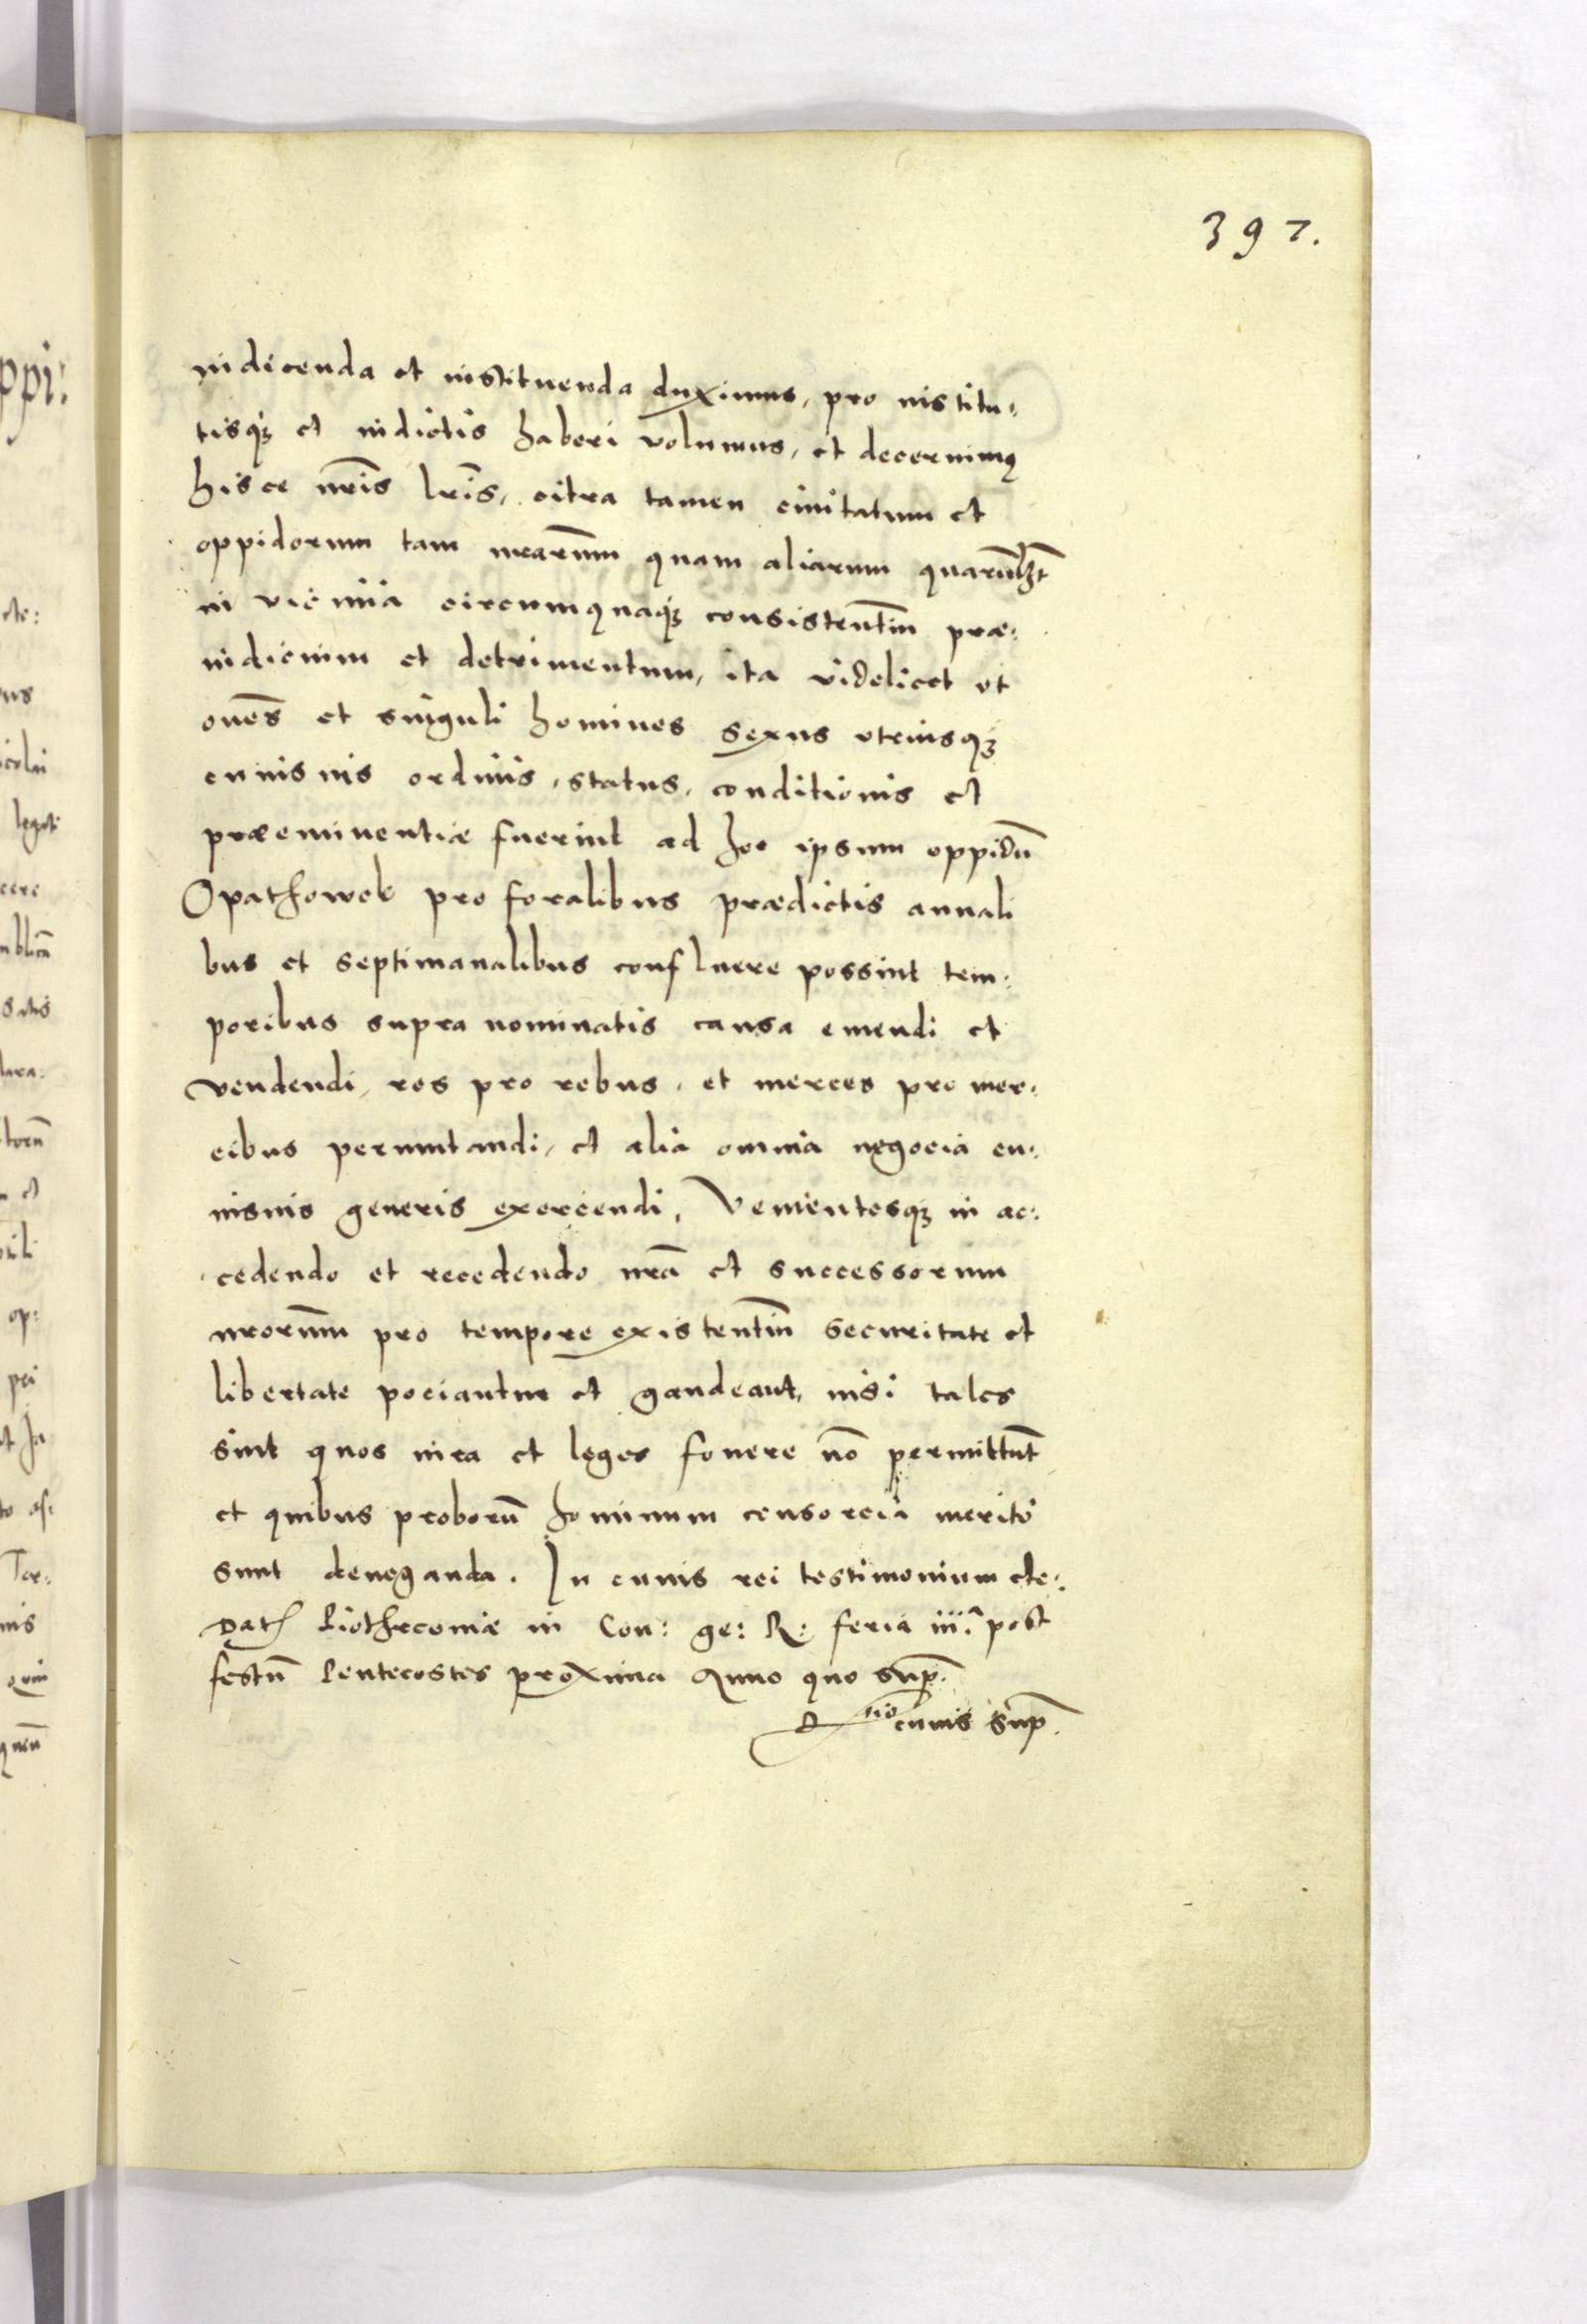 397.
indicenda et instituenda duximus, pro institu:
tisq3 et indictis haberi volumus, et decernimq
hisce nr̃is lr̃is, citra tamen ciuitatum et
oppidorum tam nrarũm quam aliarum quarũlibet
in vicinia circumquaq3 consistentĩm præ:
iudicium et detrimentum, ita videlicet vt
om̃es et singuli homines sexus vtriusq3
cuiusuis ordinis, status, conditionis et
præeminentiæ fuerint ad hoc ipsum oppidũ
Opathowek pro foralibus prædictis annali
bus et septimanalibus confluere possint tem:
poribus supra nominatis causa emendi et
vendendi, res pro rebus, et merces pro mer:
cibus permutandi, et alia omnia negocia cu:
iusuis generis exercendi, Venientesq3 in ac:
cedendo et recedendo nrã et successorum
nrorũm pro tempore existentĩm securitate et
libertate pociantur et gaudeant, nisi tales
sint quos iura et leges fouere nõ permittũt
et quibus proborũ hominum consorcia merito
sunt deneganda. In cuius rei testimonium etc:
Dat Piothrcouiæ in Con: ge: R: feria iii.ª post
festũ Pentecostes proxima Anno quo sup.
R̃tio cuius sup.
ppi:
etc:
legati
op:
Tor: